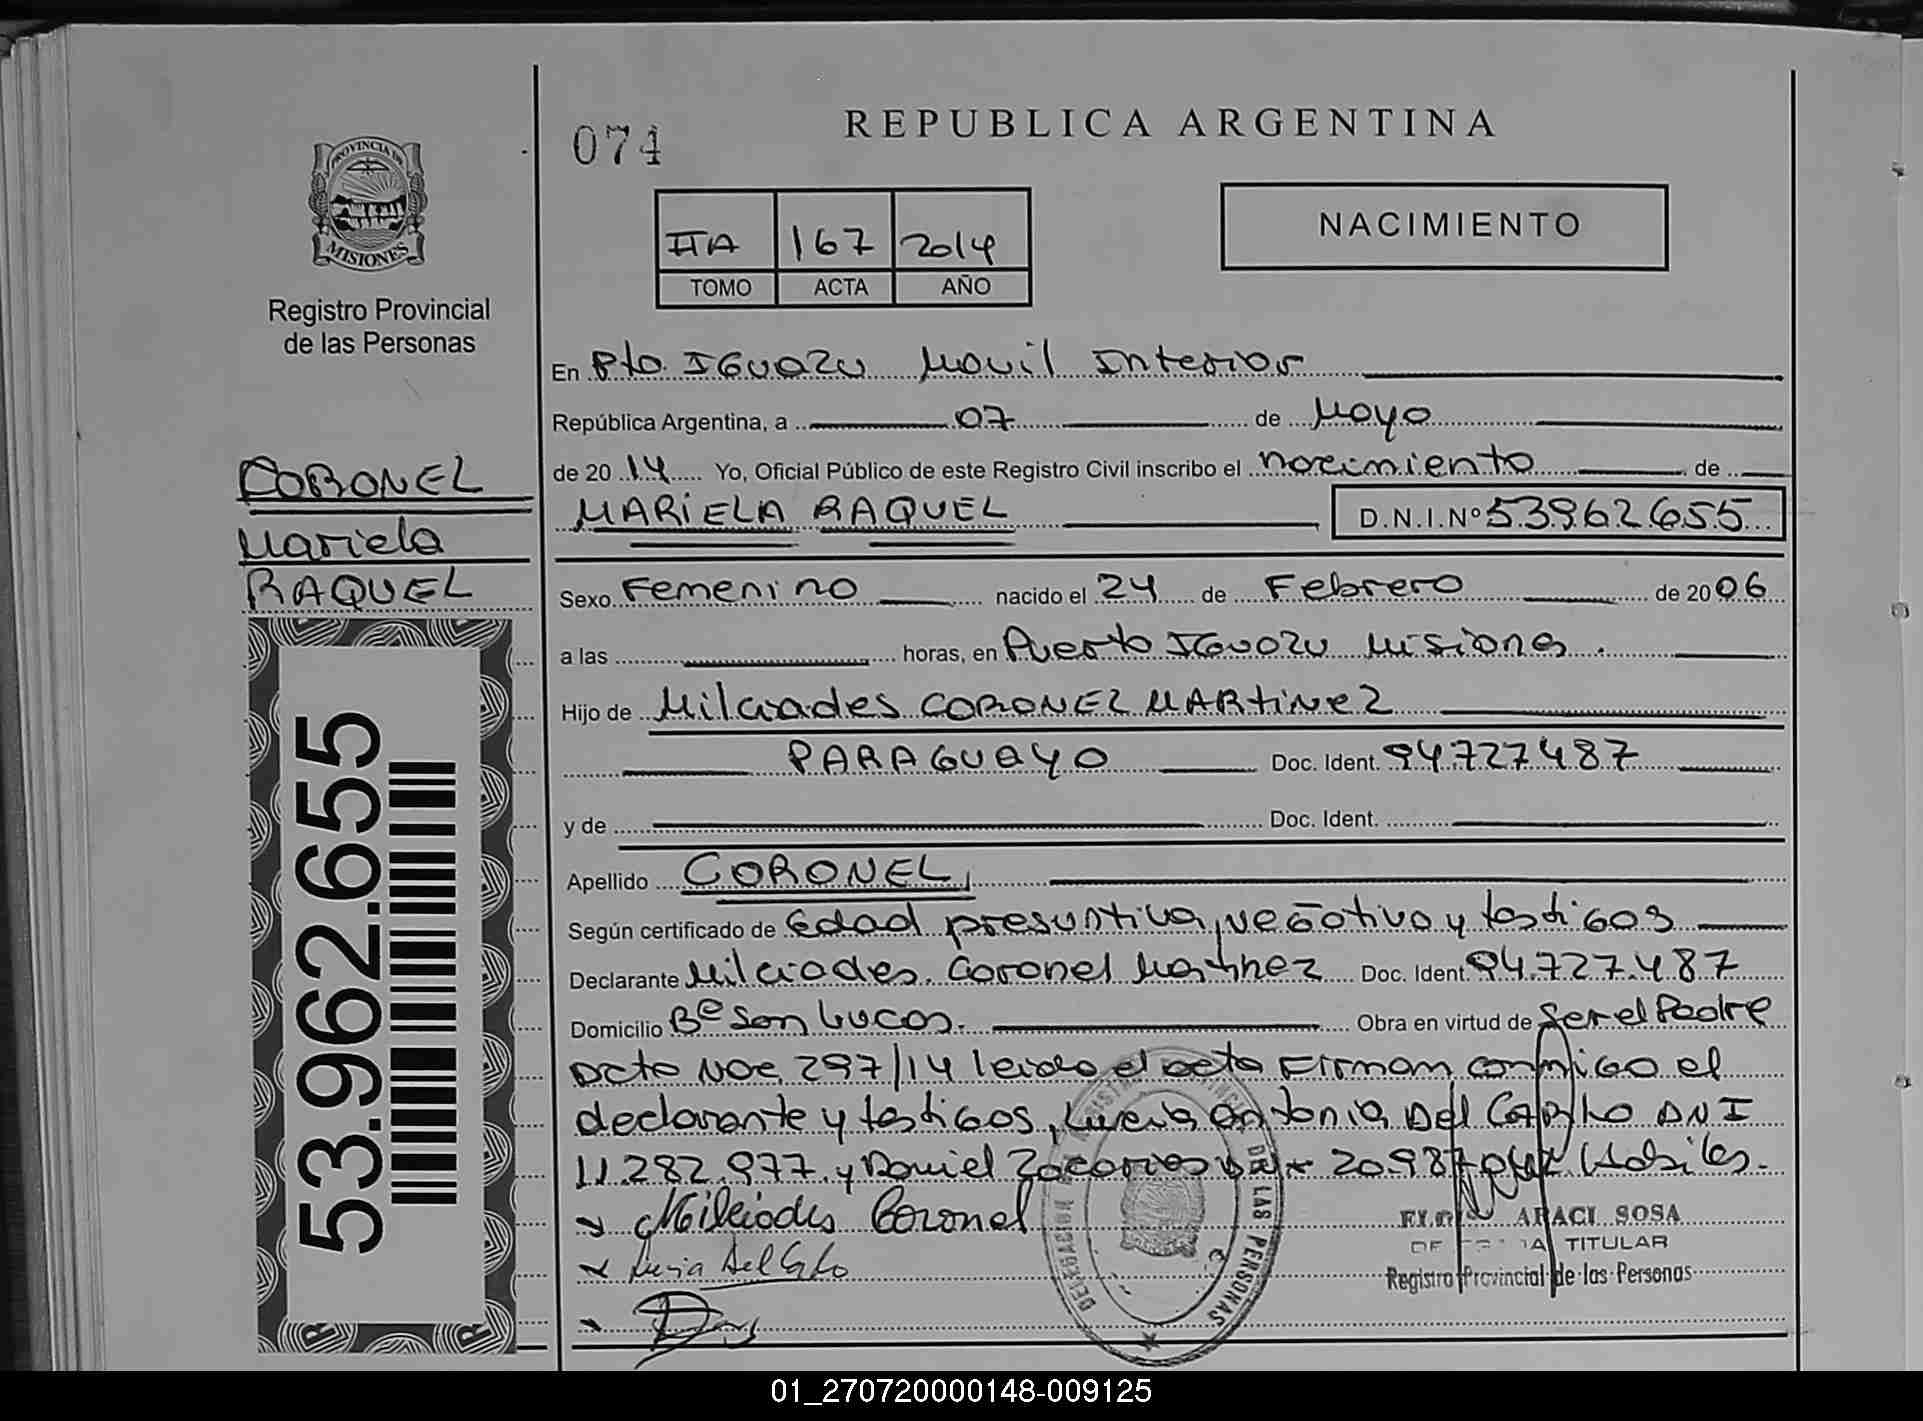 REPUBLICA ARGENTINA
074
PROVINCIA DE
MISIONES
Registro Provincial
de las Personas
IIA 167 2014
TOMO ACTA AÑO
NACIMIENTO
CORONEL
Mariela
RAQUEL
53.962.655
En Pto. IGuazu Movil Interior
República Argentina, a 07 de Mayo
de 2014 Yo, Oficial Público de este Registro Civil inscribo el nacimiento de
MARIELA RAQUEL D.N.I.Nº 53962655
Sexo Femenino nacido el 24 de Febrero de 2006
a las horas, en Puerto IGuazu Misiones.
Hijo de Milciades CORONEL MARtiNez
PARAGUAYO Doc. Ident. 94.727.487
y de Doc. Ident.
Apellido CORONEL,
Según certificado de Edad presuntiva, negativo y testigos
Declarante Milciades Coronel Martinez Doc. Ident. 94.727.487
Domicilio Bº San Lucas. Obra en virtud de ser el Padre
Dcto Nac 297/14 leida el acta Firman conmigo el
declarante y testigos, Lucia Antonia Del DNI
11.282.977 y Daniel Zacarias 20.987 Habiles.
Milciades Coronel
Lucia Del
ARACI SOSA
TITULAR
Registro Provincial de las Personas
DELEGACION DE LAS PERSONAS
01_270720000148-009125